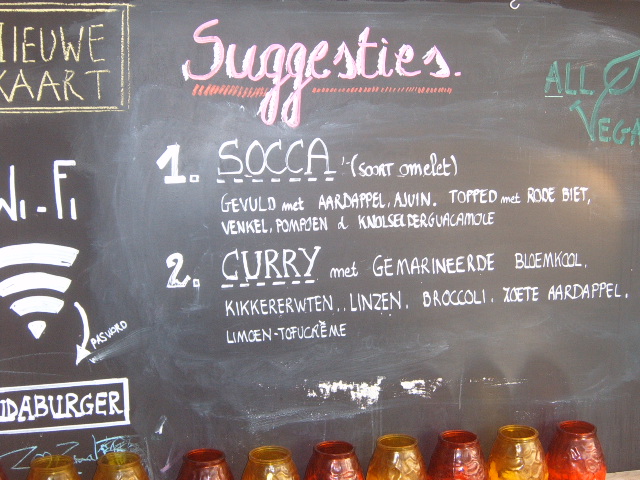 NIEUWE
KAART
Suggesties.
ALL
VEGA
1. SOCCA (soort omelet)
GEVULD met AARDAPPEL, AJUIN. TOPPED met RODE BIET,
VENKEL, POMPOEN & KNOLSELDERGUACAMOLE
Wi-Fi
2. CURRY met GEMARINEERDE BLOEMKOOL,
KIKKERERWTEN, LINZEN, BROCCOLI, ZOETE AARDAPPEL,
LIMOEN-TOFUCRÈME
PASWORD
IDABURGER